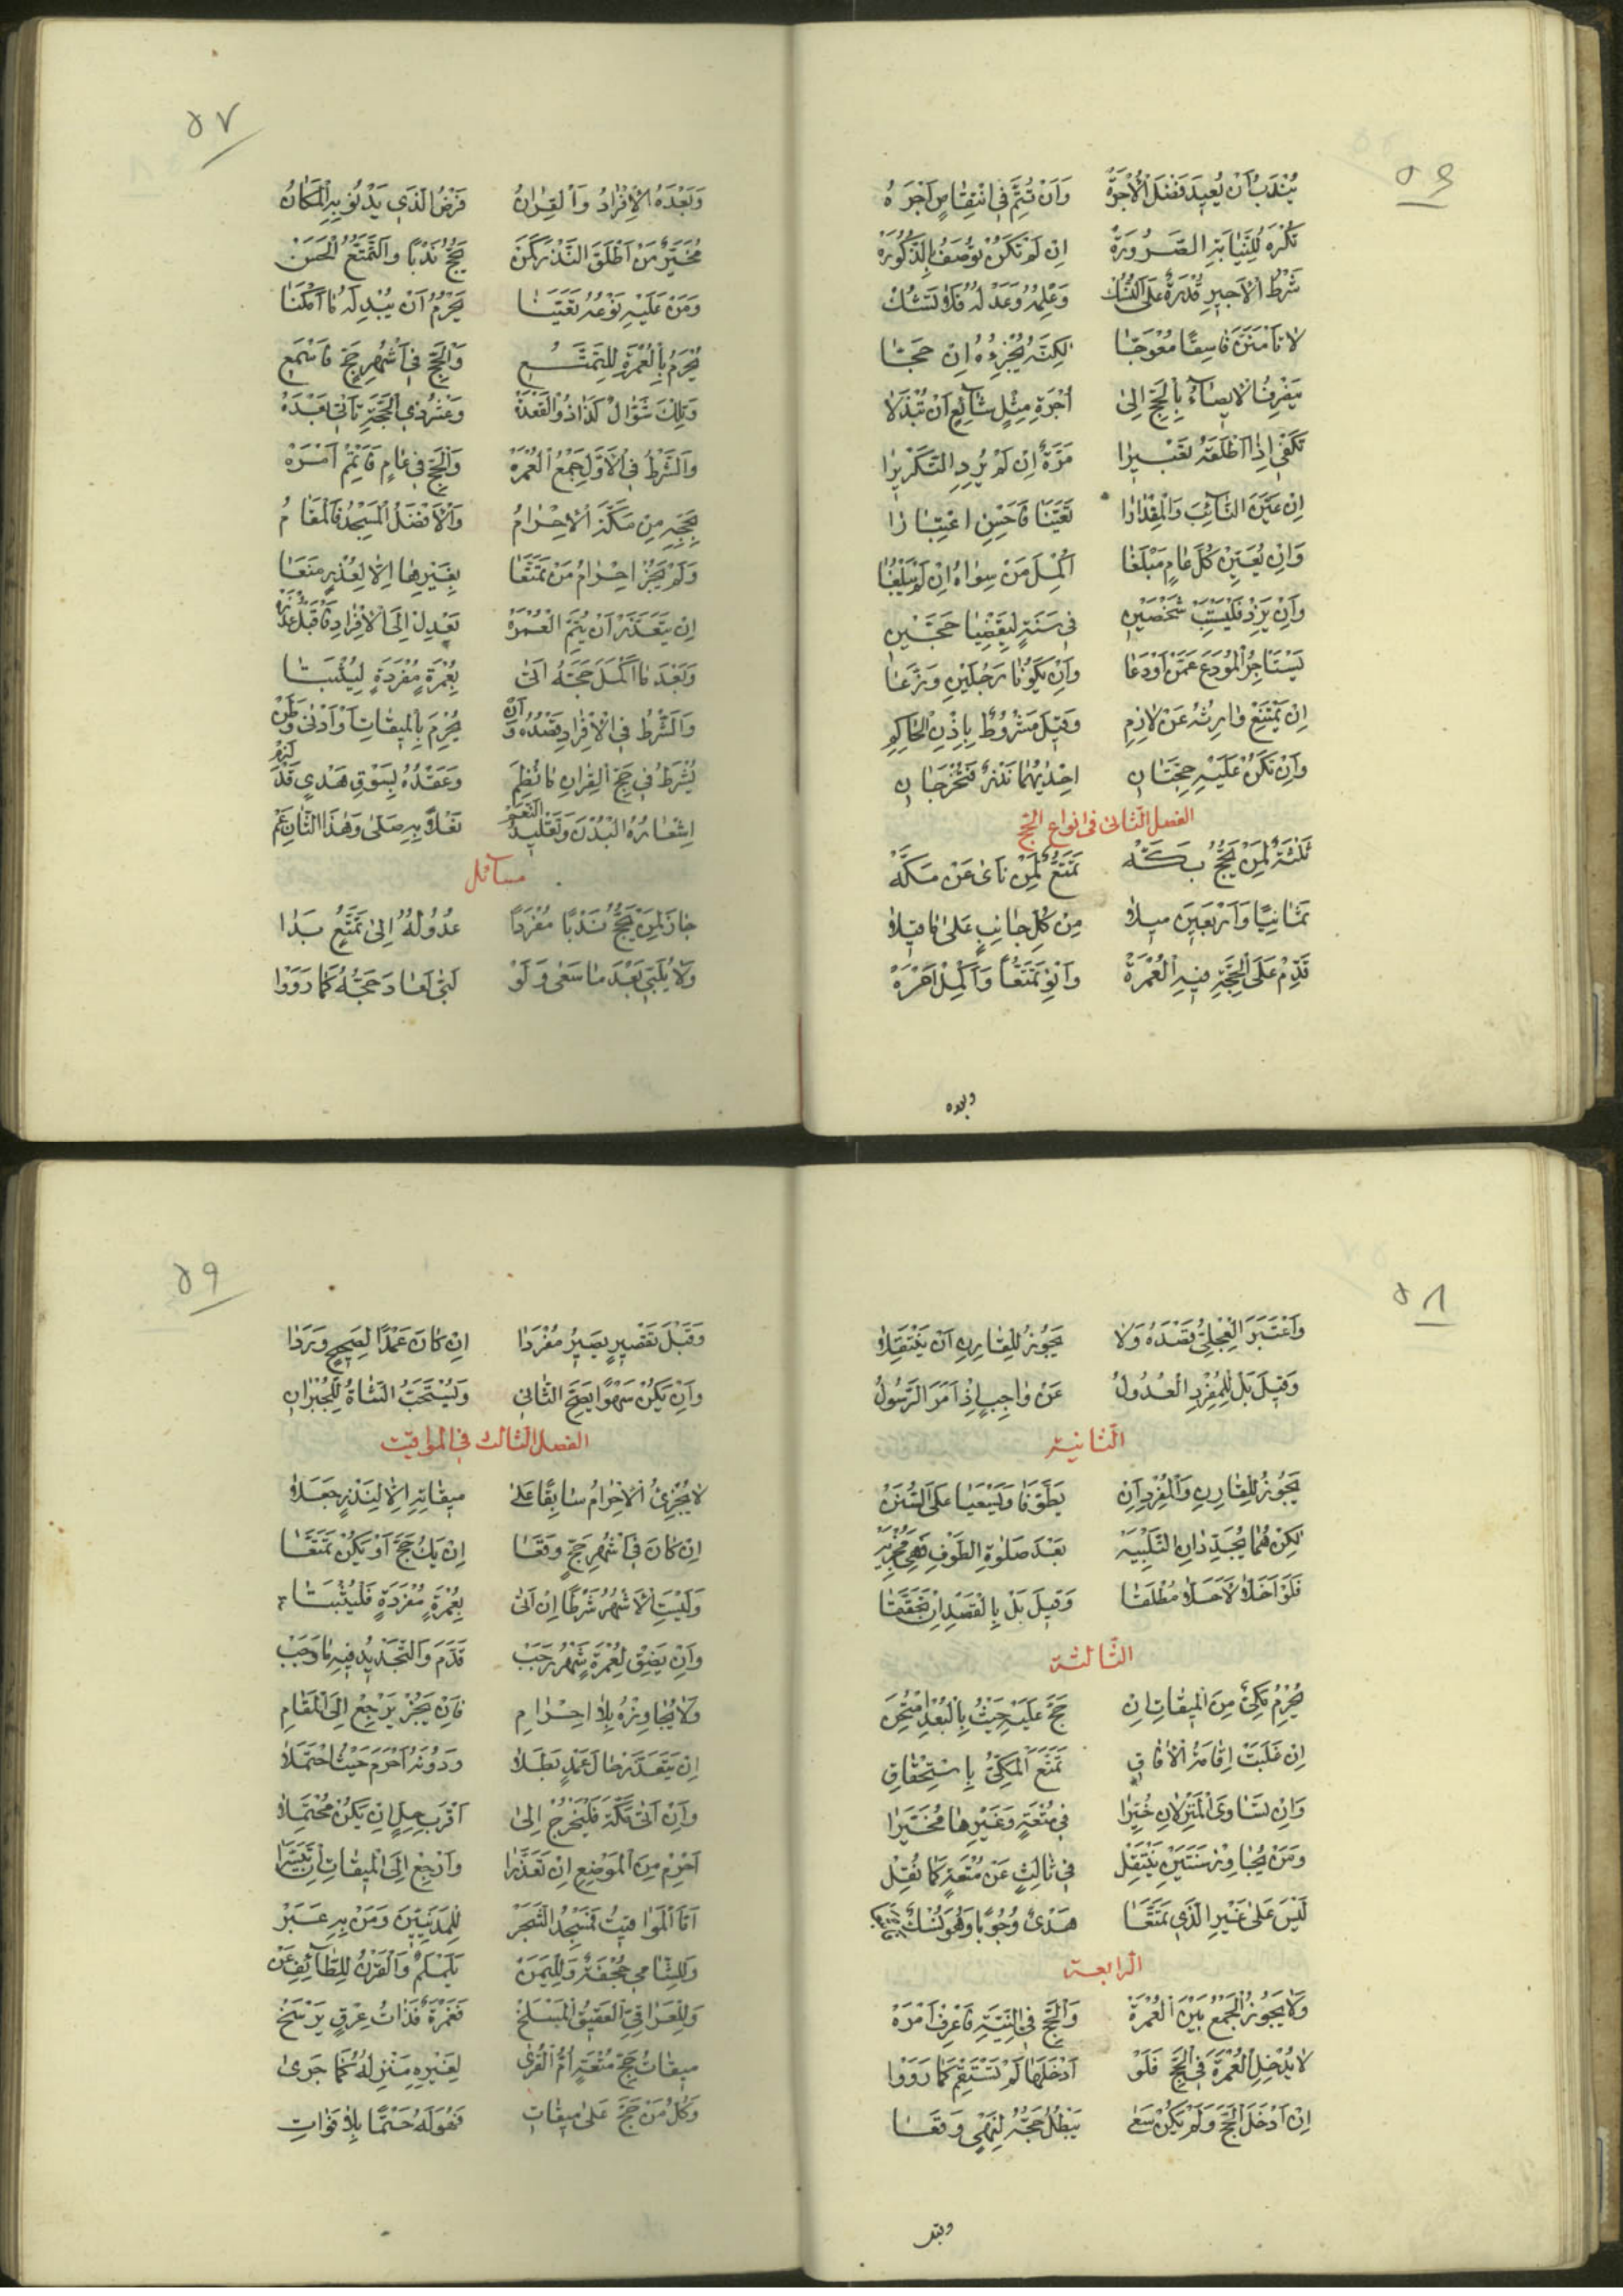 ٥٦
يُنْدَبُ اَنْ يُعِيدَ فَضْلَ الْاُجْرَةْ وَاَنْ تُتِمَّ فِي انْتِقَاصٍ اَجْرَهُ
تُكْرَهُ لِلنِّيَابَةِ الصَّرُورَةْ اِنْ لَمْ تَكُنْ تُوصَفُ بِالذُّكُورَةْ
شَرْطُ الْاَجِيرِ قُدْرَةٌ عَلَى النُّسُكْ وَعِلْمُهُ وَعَدْلُهُ فَلَا تَشُكْ
لَا تَأْمَنَنَّ فَاسِقًا مُعْوَجَّا لٰكِنَّهُ يُجْزِءُهُ اِنْ حَجَّا
يَصْرِفُنَا الْايصَاءُ بِالْحَجِّ اِلٰى اُجْرَةِ مِثْلٍ شَائِعٍ اَنْ تُبْذَلَا
تَكْفِي اِذَا اَطْلَقَهُ تَعْبِيرَا مَرَّةٌ اِنْ لَمْ يُرِدِ التَّكْرِيرَا
اِنْ عَيَّنَ النَّائِبَ وَالْمِقْدَارَا تَعَيَّنَا فَاَحْسِنِ اعْتِبَارَا
وَاِنْ يُعَيِّنْ كُلَّ عَامٍ مَبْلَغَا اُكْمِلَ مِنْ سِوَاهُ اِنْ لَمْ يَبْلُغَا
وَاِنْ يَزِدْ فَلْيَسْتَنِبْ شَخْصَيْنِ فِي سَنَةٍ لِيَقْضِيَا حَجَّيْنِ
يَسْتَأْجِرُ الْمُودَعُ عَمَّنْ اَوْدَعَا وَاِنْ يَكُونَا رَجُلَيْنِ وَزَّعَا
اِنْ يَمْتَنِعْ وَارِثُهُ عَنْ لَازِمِ وَقِيلَ مَشْرُوطٌ بِاِذْنِ الْحَاكِمِ
وَاِنْ تَكُنْ عَلَيْهِ حَجَّتَانِ اِحْدٰيهُمَا نَذْرٌ فَتُخْرَجَانِ
الفصل الثانى فى انواع الحج
ثَلٰثَةٌ لِمَنْ يَحُجُّ بَكَّهْ تَمَتُّعٌ لِمَنْ نَاٰى عَنْ مَكَّهْ
ثَمَانِيًا وَاَرْبَعِينَ مِيلَا مِنْ كُلِّ جَانِبٍ عَلٰى مَا قِيلَا
قَدِّمْ عَلَى الْحَجَّةِ فِيهِ الْعُمْرَةْ وَانْوِ تَمَتُّعًا وَاَكْمِلْ اَمْرَهْ
وبعده
٥٧
وَبَعْدَهُ الْاِفْرَادُ وَالْقِرَانُ فَرْضُ الَّذِي يَدْنُو بِهِ الْمَكَانُ
مُخَيَّرٌ مَنْ اَطْلَقَ النَّذْرَ كَمَنْ يَحُجُّ نَدْبًا وَالتَّمَتُّعُ الْحَسَنْ
وَمَنْ عَلَيْهِ نَوْعُهُ تَعَيَّنَا يَحْرُمُ اَنْ يُبْدِلَهُ مَا اَمْكَنَا
يُحْرِمُ بِالْعُمْرَةِ لِلتَّمَتُّعِ وَالْحَجِّ فِي اَشْهُرِ حَجٍّ فَاسْمَعِ
وَتِلْكَ شَوَّالٌ كَذَا ذُو الْقَعْدَةْ وَعَشْرُ ذِي الْحَجَّةِ تَاْتِي بَعْدَهْ
وَالشَّرْطُ فِي الْاَوَّلِ جَمْعُ الْعُمْرَهْ وَالْحَجِّ فِي عَامٍ فَاَتْمِمْ اَمْرَهْ
لِحَجِّهِ مِنْ مَكَّةَ الْاِحْرَامُ وَالْاَفْضَلُ الْمَسْجِدُ فَالْمَقَامُ
وَلَمْ يَجُزْ اِحْرَامُ مَنْ تَمَتَّعَا بِغَيْرِهَا اِلَّا لِعُذْرٍ مَنَعَا
اِنْ يَتَعَذَّرْ اَنْ يُتِمَّ الْعُمْرَةْ يَعْدِلْ اِلَى الْاِفْرَادِ فَاقْبَلْ عُذْرَهْ
وَبَعْدَ مَا اَكْمَلَ حَجَّهُ اَتٰى بِعُمْرَةٍ مُفْرَدَةٍ لِيُثْبَتَا
وَالشَّرْطُ فِي الْاِفْرَادِ قَصْدُهُ وَاَنْ يُحْرِمَ بِالْمِيقَاتِ اَوْ اَدْنٰى وَطَنْ
يُشْرَطُ فِي حَجِّ الْقِرَانِ مَا نُظِمَ وَعَقْدُهُ بِسَوْقِ هَدْيٍ قَدْ لَزِمْ
اِشْعَارُهُ الْبُدْنَ وَتَقْلِيدُ النَّعَمْ نَعْلًا بِهِ صَلّٰى وَهٰذَا الثَّانِ عَمْ
مسائل
جَازَ لِمَنْ يَحُجُّ نَدْبًا مُفْرَدَا عُدُولُهُ اِلٰى تَمَتُّعٍ بَدَا
وَلَا يُلَبِّي بَعْدَ مَا سَعٰى وَلَوْ لَبّٰى اَعَادَ حَجَّهُ كَمَا رَوَوْا
٥٨
وَاعْتَبَرَ الْعِجْلِيُّ قَصْدَهُ وَلَا يَجُوزُ لِلْقَارِنِ اَنْ يَنْتَقِلَا
وَقِيلَ بَلْ لِلْمُفْرِدِ الْعُدُولُ عَنْ وَاجِبٍ اِذْ اَمَرَ الرَّسُولُ
الثانية
يَجُوزُ لِلْقَارِنِ وَالْمُفْرِدِ اَنْ يَطَّوَّفَا وَيَسْعَيَا عَلَى السُّنَنْ
لٰكِنْ هُمَا يُجَدِّدَانِ التَّلْبِيَهْ بَعْدَ صَلٰوةِ الطَّوْفِ فَهِيَ مُجْزِيَهْ
فَلَوْ اَخَلَّا لَاَحَلَّا مُطْلَقَا وَقِيلَ بَلْ بِالْقَصْدِ اِنْ تَحَقَّقَا
الثالثة
يُحْرِمُ مَكِّيٌّ مِنَ الْمِيقَاتِ اِنْ حَجَّ عَلَيْهِ حَيْثُ بِالْبُعْدِ امْتُحِنَ
اِنْ غَلَبَتْ اِقَامَةُ الْاٰفَاقِ تَمَتَّعَ الْمَكِّيُّ بِاسْتِحْقَاقِ
وَاِنْ تَسَاوَى الْمَنْزِلَانِ خُيِّرَا فِي مُتْعَةٍ وَغَيْرِهَا مُخَيَّرَا
وَمَنْ يُجَاوِرْ سَنَتَيْنِ يَنْتَقِلْ فِي ثَالِثٍ عَنْ مُتْعَةٍ كَمَا نُقِلْ
لَيْسَ عَلٰى غَيْرِ الَّذِي تَمَتَّعَا هَدْيٌ وُجُوبًا وَهُوَ نُسْكٌ
الرابعة
وَلَا يَجُوزُ الْجَمْعُ بَيْنَ الْعُمْرَةْ وَالْحَجِّ فِي النِّيَّةِ فَاعْرِفْ اَمْرَهْ
لَا يُدْخِلِ الْعُمْرَةَ فِي الْحَجِّ فَلَوْ اَدْخَلَهَا لَمْ تَسْتَقِمْ كَمَا رَوَوْا
اِنْ اَدْخَلَ الْحَجَّ وَلَمْ يَكُنْ سَعٰى يَبْطُلُ حَجُّهُ لِنَهْيٍ وَقَعَا
وقبل
٥٩
وَقَبْلَ تَقْصِيرٍ يَصِيرُ مُفْرَدَا اِنْ كَانَ عَمْدًا لِصَحِيحٍ وَرَدَا
وَاِنْ يَكُنْ سَهْوًا يَصِحَّ الثَّانِي وَيُسْتَحَبُّ الشَّاةُ لِلْجُبْرَانِ
الفصل الثالث فى المواقيت
لَا يُجْزِئُ الْاِحْرَامُ سَابِقًا عَلٰى مِيقَاتِهِ اِلَّا لِنَذْرٍ جَعَلَا
اِنْ كَانَ فِي اَشْهُرِ حَجٍّ وَقَعَا اِنْ يَكُ حَجَّ اَوْ يَكُنْ تَمَتَّعَا
وَلَيْسَتِ الْاَشْهُرُ شَرْطًا اِنْ اَتٰى بِعُمْرَةٍ مُفْرَدَةٍ فَلْيُثْبَتَا
وَاِنْ يَضِقْ لِعُمْرَةٍ شَهْرُ رَجَبْ قَدَّمَ وَالتَّجْدِيدُ فِيهِ مَا وَجَبْ
وَلَا يُجَاوِزْهُ بِلَا اِحْرَامِ فَاِنْ يَجُزْ يَرْجِعْ اِلَى الْمَقَامِ
اِنْ يَتَعَذَّرْ حَالَ عَمْدٍ بَطَلَا وَدُونَهُ اَحْرَمَ حَيْثُ احْتَمَلَا
وَاِنْ اَتٰى مَكَّةَ فَلْيَخْرُجْ اِلٰى اَقْرَبِ حِلٍّ اِنْ يَكُنْ مُحْتَمَلَا
اَحْرِمْ مِنَ الْمَوْضِعِ اِنْ تَعَذَّرَا وَارْجِعْ اِلَى الْمِيقَاتِ اِنْ تَيَسَّرَا
اَمَّا الْمَوَاقِيتُ فَمَسْجِدُ الشَّجَرْ لِلْمَدَنِيِّينَ وَمَنْ بِهِ عَبَرْ
وَلِلشَّامِي جُحْفَةٌ وَلِلْيَمَنْ يَلَمْلَمٌ وَالْقَرْنُ لِلطَّائِفِ عَنْ
وَلِلْعِرَاقِيِّ الْعَقِيقُ الْمَسْلَخْ فَغَمْرَةٌ فَذَاتُ عِرْقٍ يَرْسَخْ
مِيقَاتُ حَجِّ مُتْعَةٍ اُمُّ الْقُرٰى لِغَيْرِهِ مَنْزِلُهُ كَمَا جَرٰى
وَكُلُّ مَنْ حَجَّ عَلٰى مِيقَاتِ فَهْوَ لَهُ حَتْمًا بِلَا فَوَاتِ